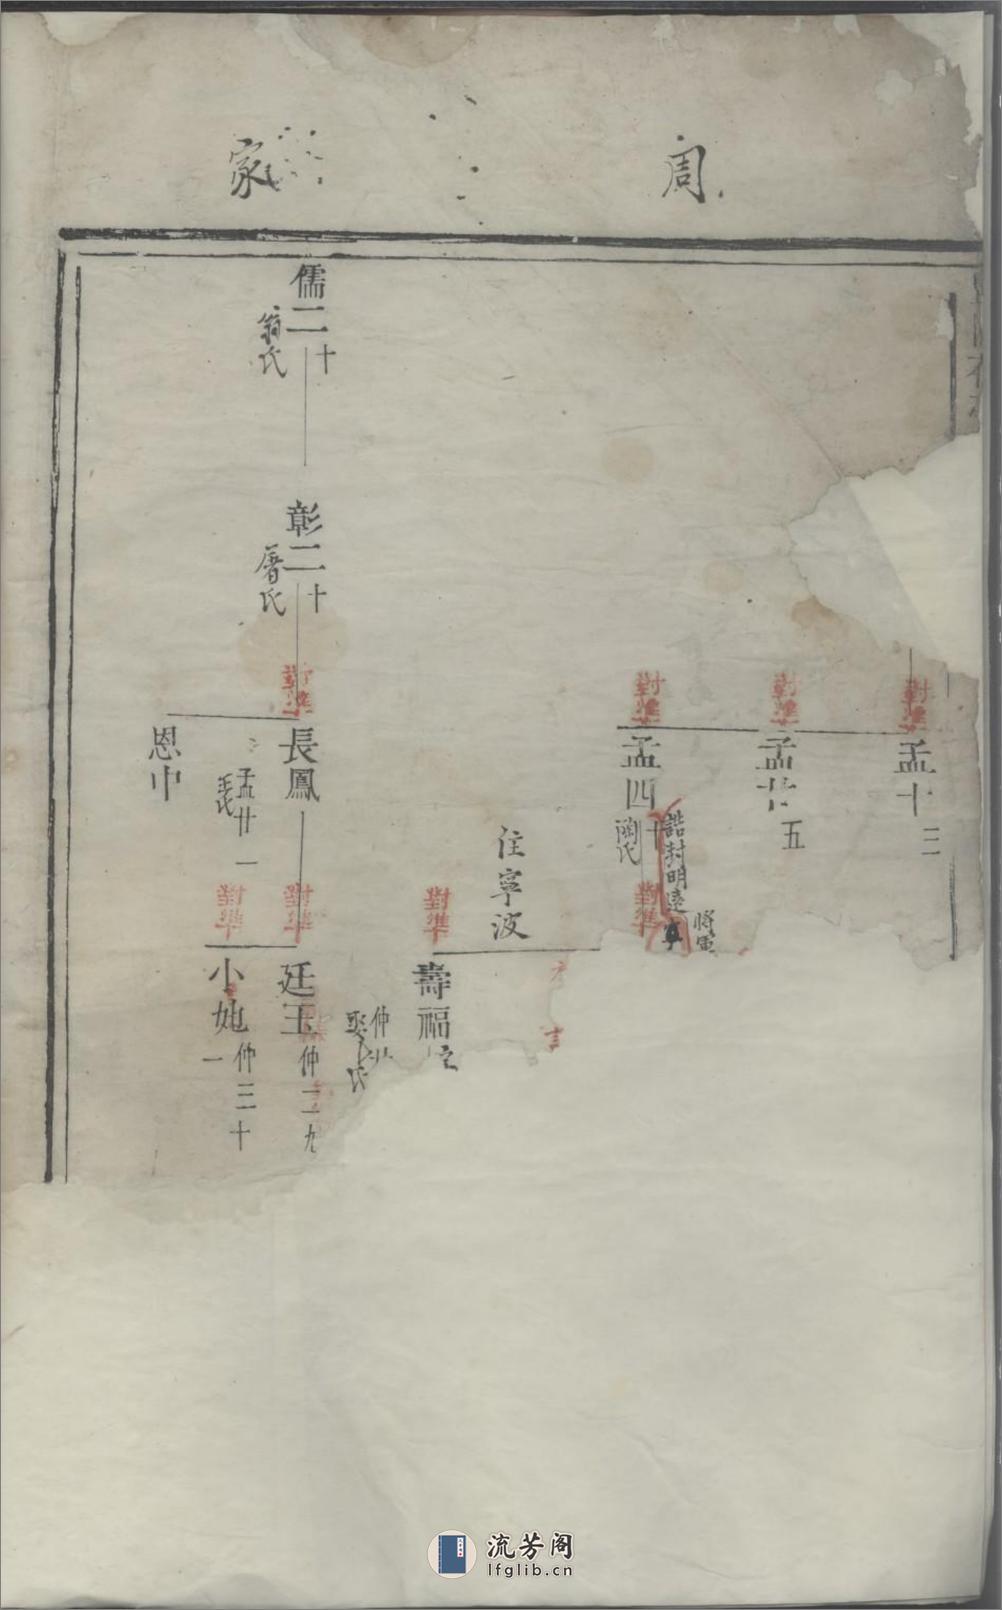 周
家
孟十三
對準
孟廿五
對準
孟四十
對準
陶氏
誥封明遠
將軍
對準
住寧波
對準
壽福
仲
娶 氏
儒二十
翁氏
彰二十
屠氏
對準
長鳳
孟廿一
王氏
對準
廷玉
仲二九
對準
小
仲三十一
恩中
流芳阁
lfglib.cn